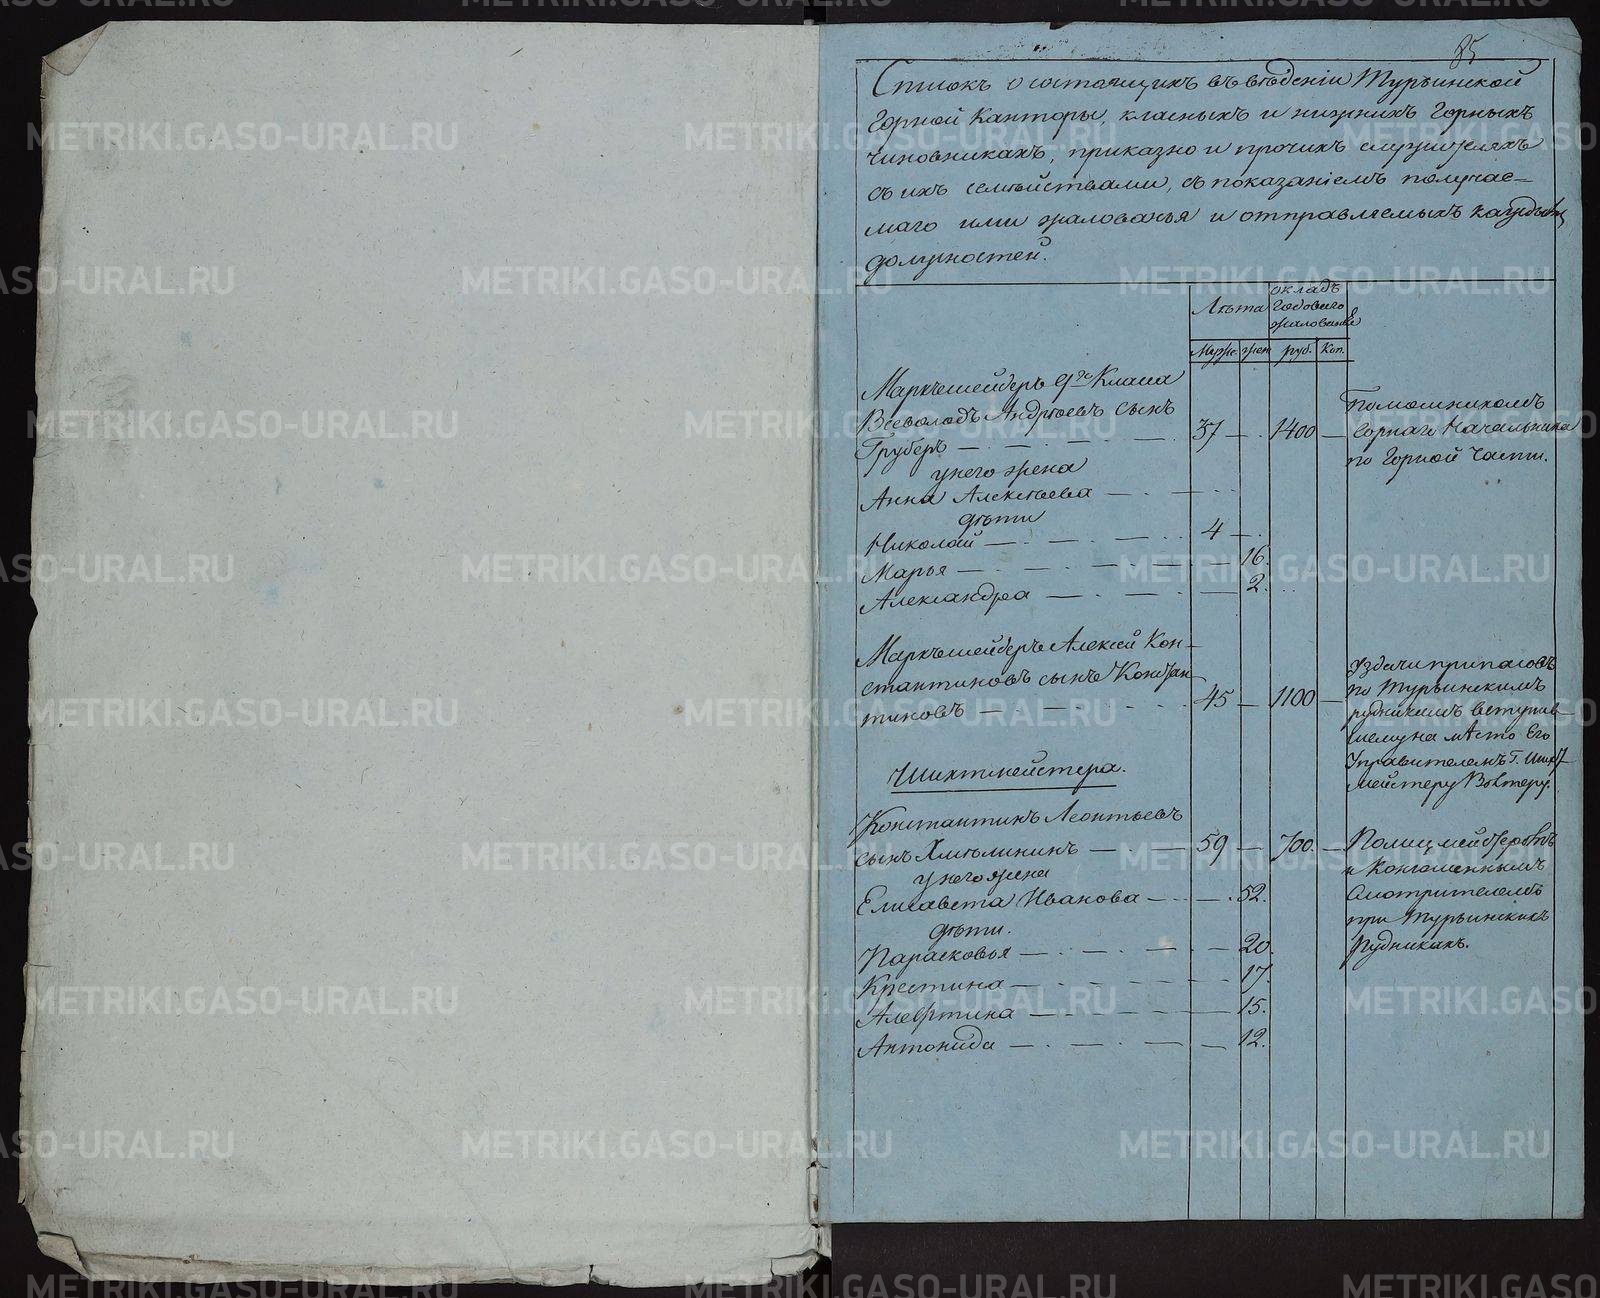 85
Списокъ о состоящихъ въ вѣденіи Турьинской
Горной Канторы, класныхъ и нижнихъ Горныхъ
чиновникахъ, приказно и прочихъ служителяхъ
съ ихъ семѣйствами, съ показаніемъ получае-
маго ими жалованья и отправляемыхъ каждымъ
должностей.
Лѣта
окладъ
Годоваго
жалованья
Муж. жен. руб. Коп.
Маркъшейдеръ 9го Класа
Всеволодъ Андрѣевъ сынъ
Груберъ 37 1400
Помошникомъ
Горнаго Начальника
по Горной Части.
у него жена
Анна Алексѣева
дѣти
Николай 4
Марья 16.
Александра 2.
Маркъшейдеръ Алексей Кон-
стантиновъ сынъ Констан-
тиновъ 45 1100
Уздачи припасовъ
по Турьинскимъ
рудникамъ вступив-
шему на мѣсто Его
Управителемъ Г. Шихт-
мейстеру
Шихтмейстера.
Константинъ Леонтьевъ
сынъ Хмѣлининъ 59 700.
Полицмейстеромъ
и Конюшеннымъ
Смотрителемъ
при Турьинскихъ
Рудникахъ.
у него жена
Елисавета Иванова 52.
дѣти.
Парасковья 20.
Крестина 17.
Алефтина 15.
Антонида 12.
METRIKI.GASO-URAL.RU